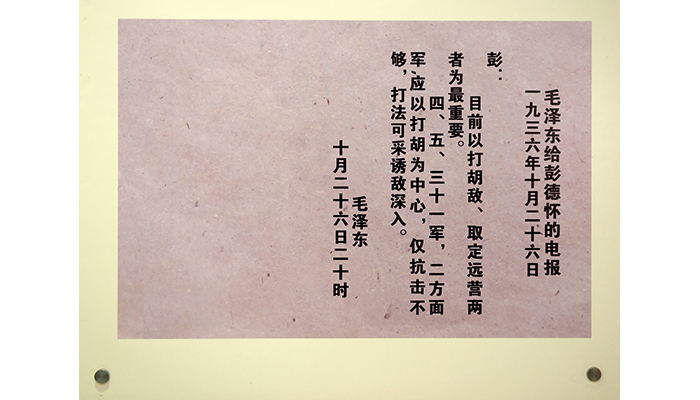 毛泽东给彭德怀的电报
一九三六年十月二十六日
彭：
目前以打胡敌、取定远营两
者为最重要。
四、五、三十一军，二方面
军，应以打胡为中心，仅抗击不
够，打法可采诱敌深入。
毛泽东
十月二十六日二十时